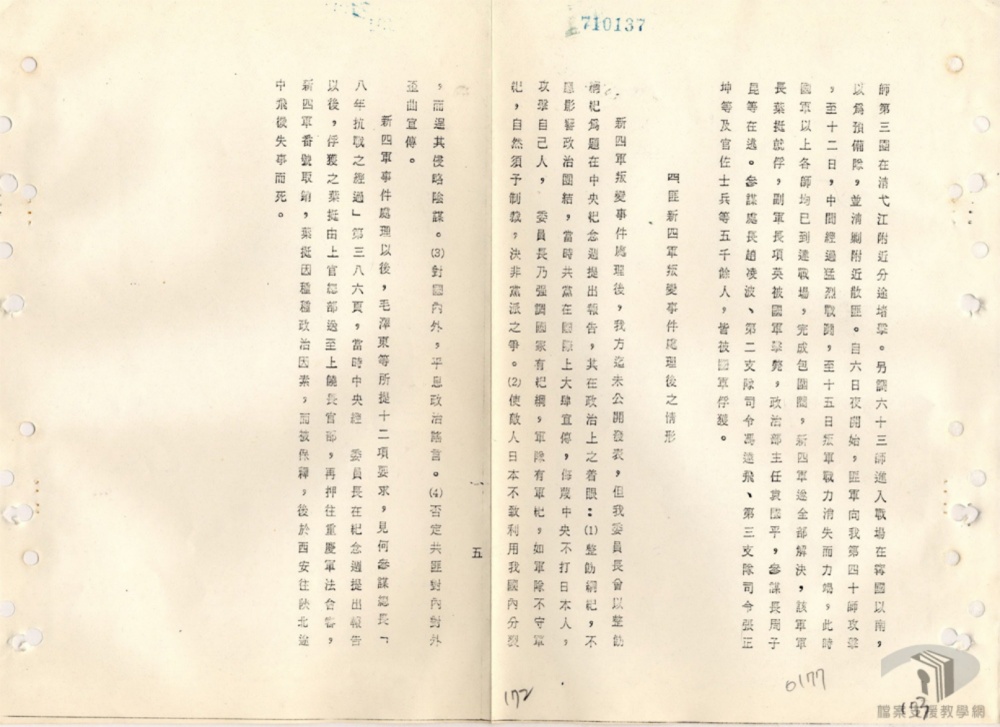 710137
師第三團在清弋江附近分途堵擊。另調六十三師進入戰場在寧國以南,
以爲預備隊,並清剿附近散匪。自六日夜開始,匪軍向我第四十師攻擊
,至十二日,中間經過猛烈戰鬪,至十五日叛軍戰力消失而力竭,此時
國軍以上各師均已到達戰場,完成包圍圈,新四軍遂全部解決,該軍軍
長葉挺就俘,副軍長項英被國軍擊斃,政治部主任袁國平,參謀長周子
昆等在逃。參謀處長趙凌波、第二支隊司令馮達飛、第三支隊司令張正
坤等及官佐士兵等五千餘人,皆被國軍俘獲。
四匪新四軍叛變事件處理後之情形
新四軍叛變事件處理後,我方迄未公開發表,但我委員長曾以整飭
綱紀爲題在中央紀念週提出報告,其在政治上之着眼:⑴整飭綱紀,不
是影響政治團結,當時共黨在國際上大肆宣傳,侮衊中央不打日本人,
攻擊自己人, 委員長乃强調國家有紀綱,軍隊有軍紀,如軍隊不守軍
紀,自然須予制裁,決非黨派之爭。⑵使敵人日本不敢利用我國內分裂
172
0177
173
五
,而逞其侵略陰謀。⑶對國內外,平息政治謠言。⑷否定共匪對內對外
歪曲宣傳。
新四軍事件處理以後,毛澤東等所提十二項要求,見何參謀總長「
八年抗戰之經過」第三八六頁,當時中央經 委員長在紀念週提出報告
以後,俘獲之葉挺由上官總部送至上饒長官部,再押往重慶軍法會審,
新四軍番號取銷,葉挺因種種政治因素,而被保釋,後於西安往陝北途
中飛機失事而死。
檔案支援教學網